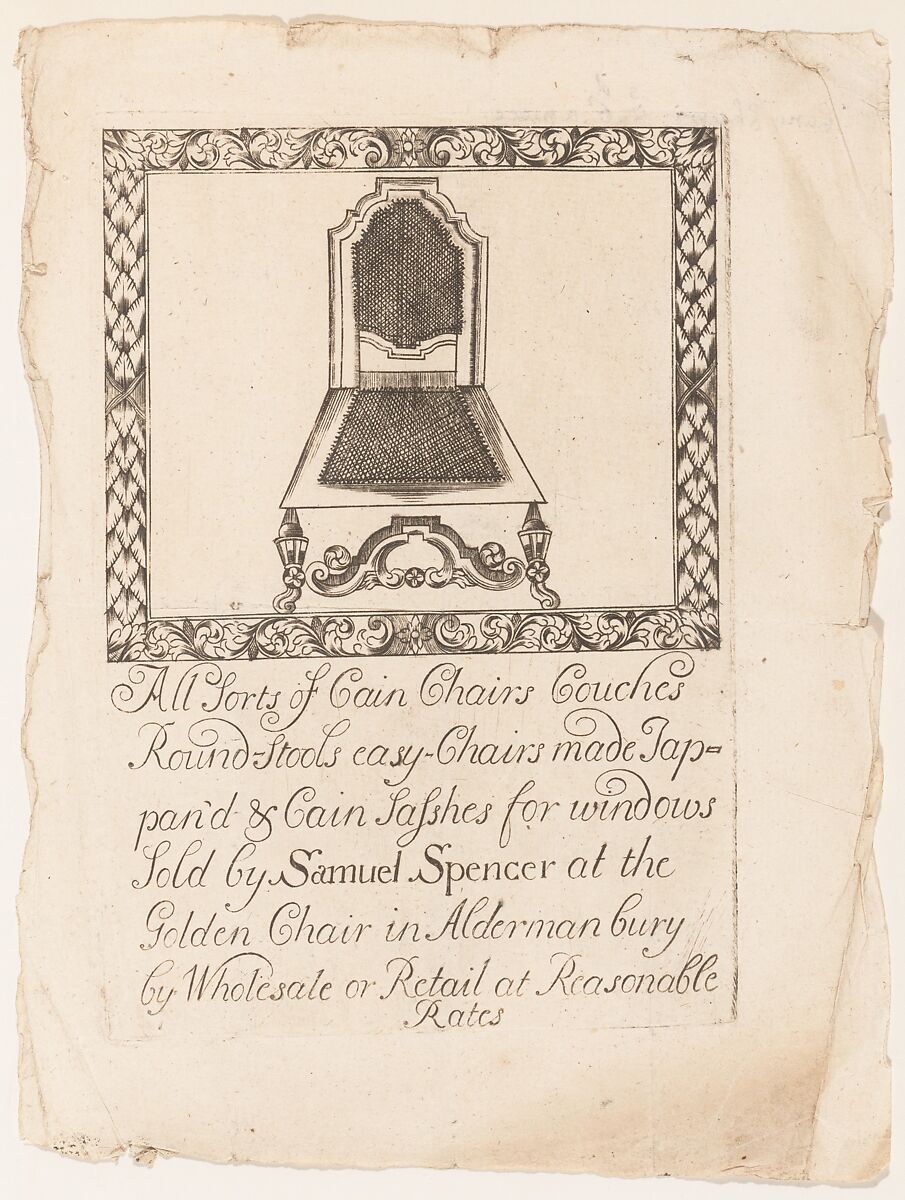 All Sorts of Cain Chairs Couches
Round-Stools easy-Chairs made Jap=
pan'd & Cain Sasshes for windows
Sold by Samuel Spencer at the
Golden Chair in Alderman bury
by Wholesale or Retail at Reasonable
Rates